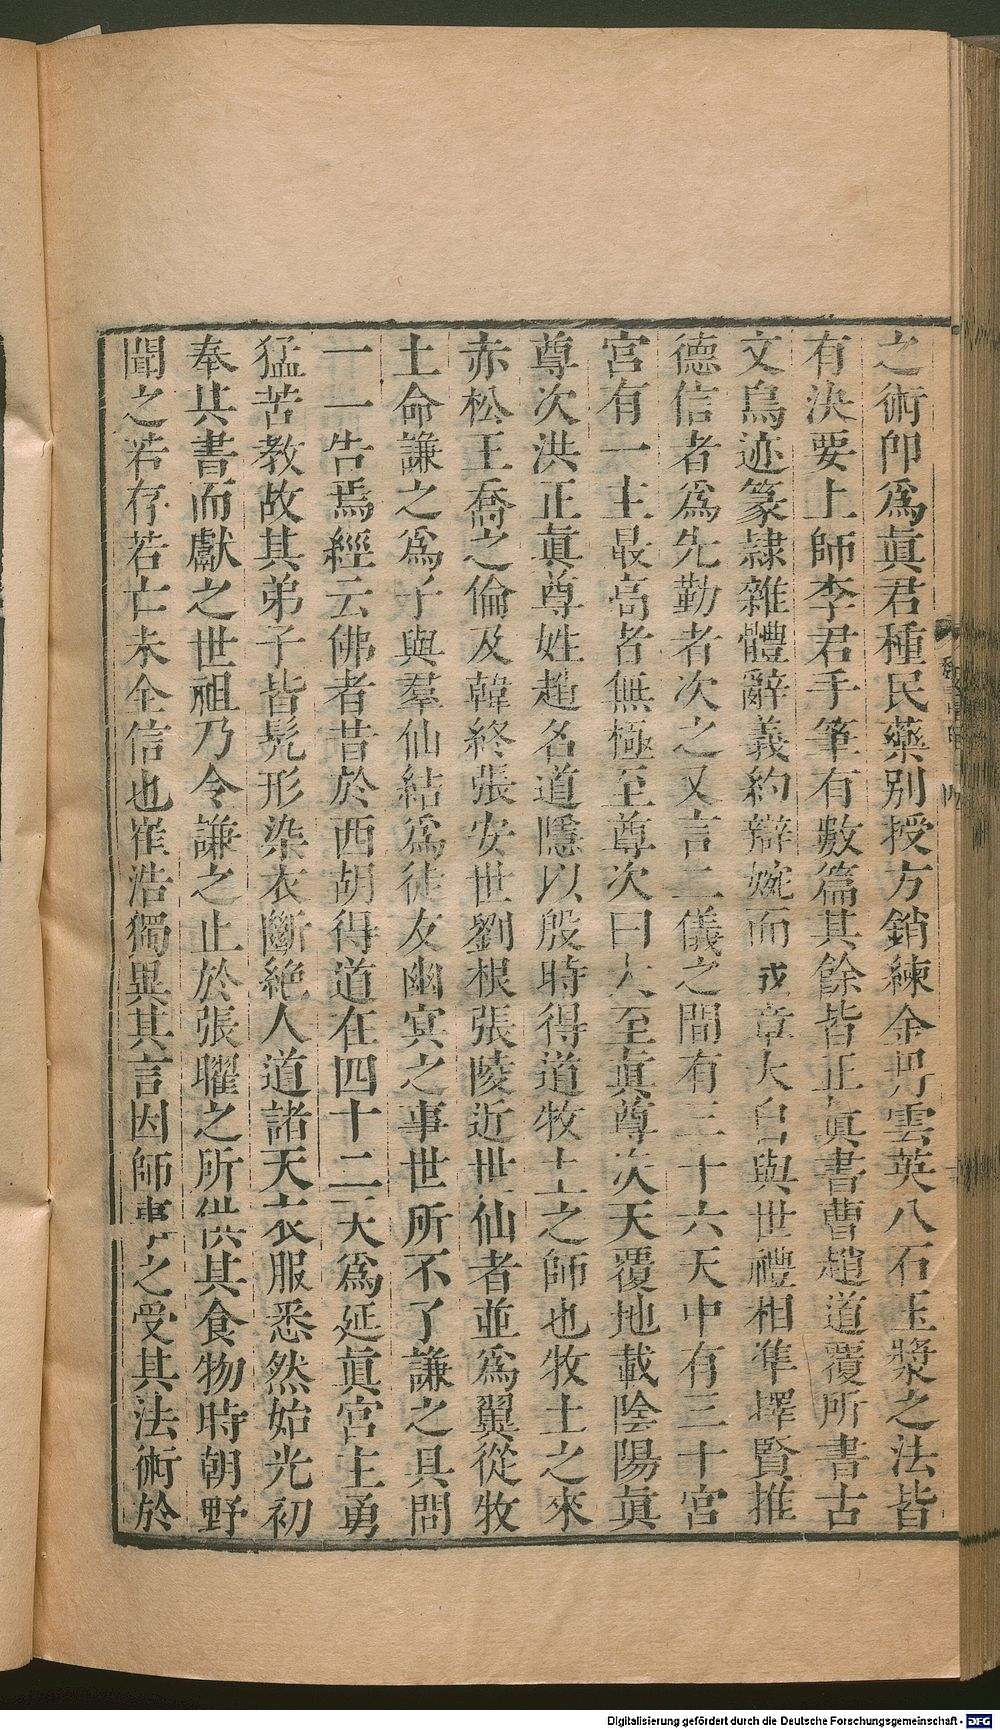 之術卽爲眞君種民藥別授方銷練金丹雲英八石玉漿之法皆
有決要上師李君手筆有數篇其餘皆正眞書曹趙道覆所書古
文鳥迹篆隸雜體辭義約辯婉而成章大自與世禮相準擇賢推
德信者爲先勤者次之又言二儀之間有三十六天中有三十宮
宮有一主最高者無極至尊次曰大至眞尊次天覆地載陰陽眞
尊次洪正眞尊姓趙名道隱以殷時得道牧土之師也牧土之來
赤松王喬之倫及韓終張安世劉根張陵近世仙者並爲翼從牧
土命謙之爲子與羣仙結爲徒友幽冥之事世所不了謙之具問
一一告焉經云佛者昔於西胡得道在四十二天爲延眞宮主勇
猛苦教故其弟子皆髡形染衣斷絕人道諸天衣服悉然始光初
奉其書而獻之世祖乃令謙之止於張曜之所供其食物時朝野
聞之若存若亡未全信也崔浩獨異其言因師事之受其法術於